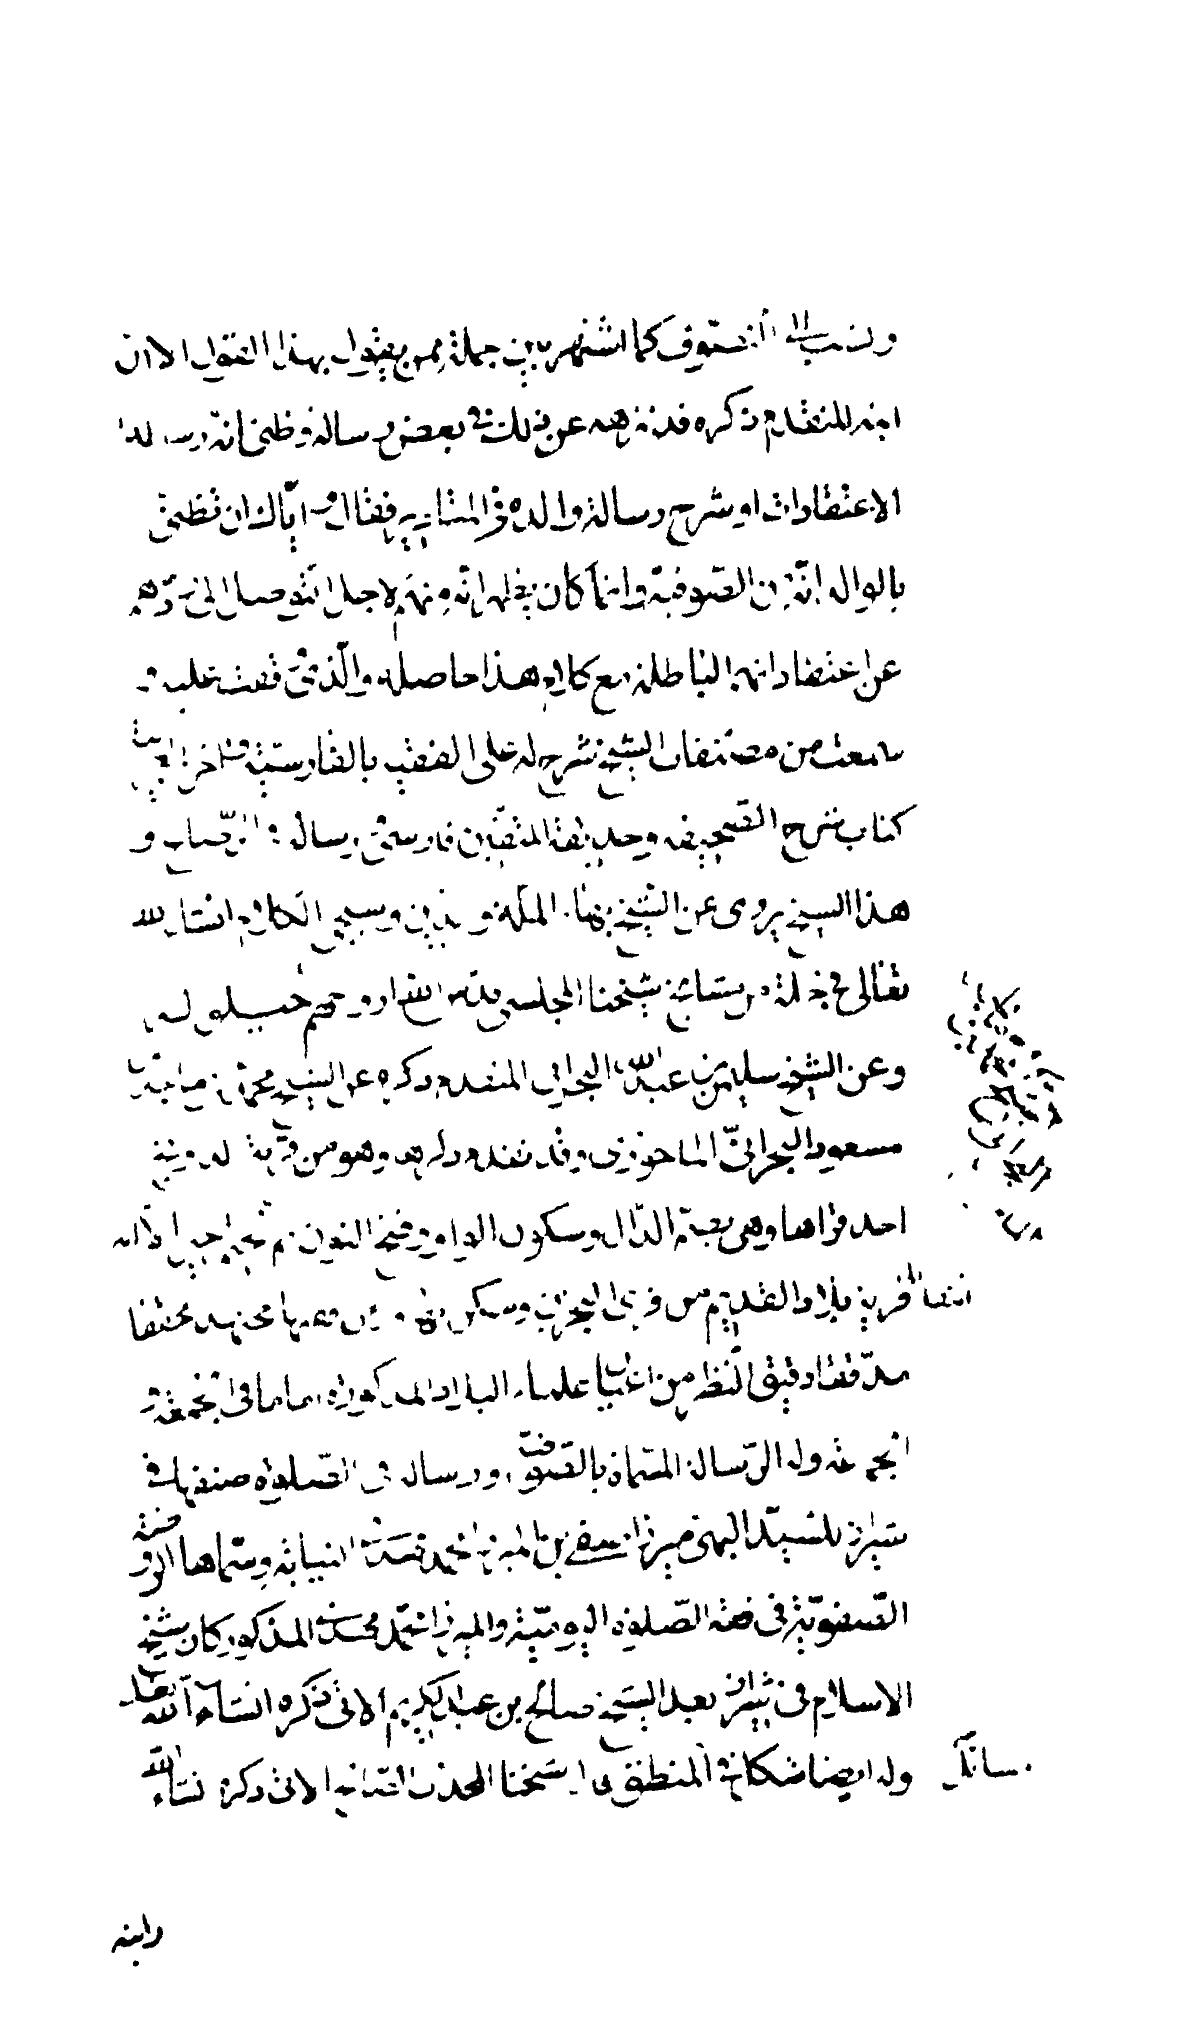 ونسب الى التصوف كما اشتهر بين جملة ممن يقول بهذا القول الا ان
ابنه المتقدم ذكره قد نزهه عن ذلك في بعض رسائله وظني انه رسالة
الاعتقادات او شرح رسالة والده في المتأدبة فقال واياك ان تظن
بالوالد انه من الصوفية وانما كان يظهر انه منهم لاجل التوصل الى ردهم
عن اعتقاداتهم الباطلة مع كلام هذا حاصله والذي وقفت عليه و
سمعت من مصنفات الشيخ شرح له على الفقيه بالفارسية واخر بالعربية
كتاب شرح الصحيفة وحديقة المتقين فارسي رسالة في الرضاع و
هذا الشيخ يروي عن الشيخ بهاء الملة والدين وسيجئ الكلام انشاء الله
تعالى في جملة من مشايخ شيخنا المجلسي قدس الله ارواحهم
وعن الشيخ سليمن بن عبد الله البحراني المتقدم ذكره عن الشيخ محمد بن ماجد بن
مسعود البحراني الماحوزي وقد تقدم ذكره وهو من قرية الدونج
احد قراها وهي بضم الدال وسكون الواو وفتح النون ثم جيم اخيرا الا انه
انتقل الى قرية بلاد القديم من قرى البحرين وسكن بها وكان فقيها مجتهدا محققا
مدققا دقيق النظر من اعيان علماء البلاد المذكورة اماما في الجمعة و
الجماعة وله الرسالة المسماة بالصوفية ورسالة في الصلوة صنفها في
شيراز للسيد البهي ميرزا صفي بن الميرزا محمد النسابة وسماها الروضة
الصفوية في فقه الصلوة اليومية والميرزا محمد المذكور كان شيخ
الاسلام في شيراز بعد الشيخ صالح بن عبد الكريم الاتي ذكره انشاء الله تعالى
وله ايضا شكا في المنطق شيخنا المحدث الصالح الاتي ذكره انشاء الله
وابنه